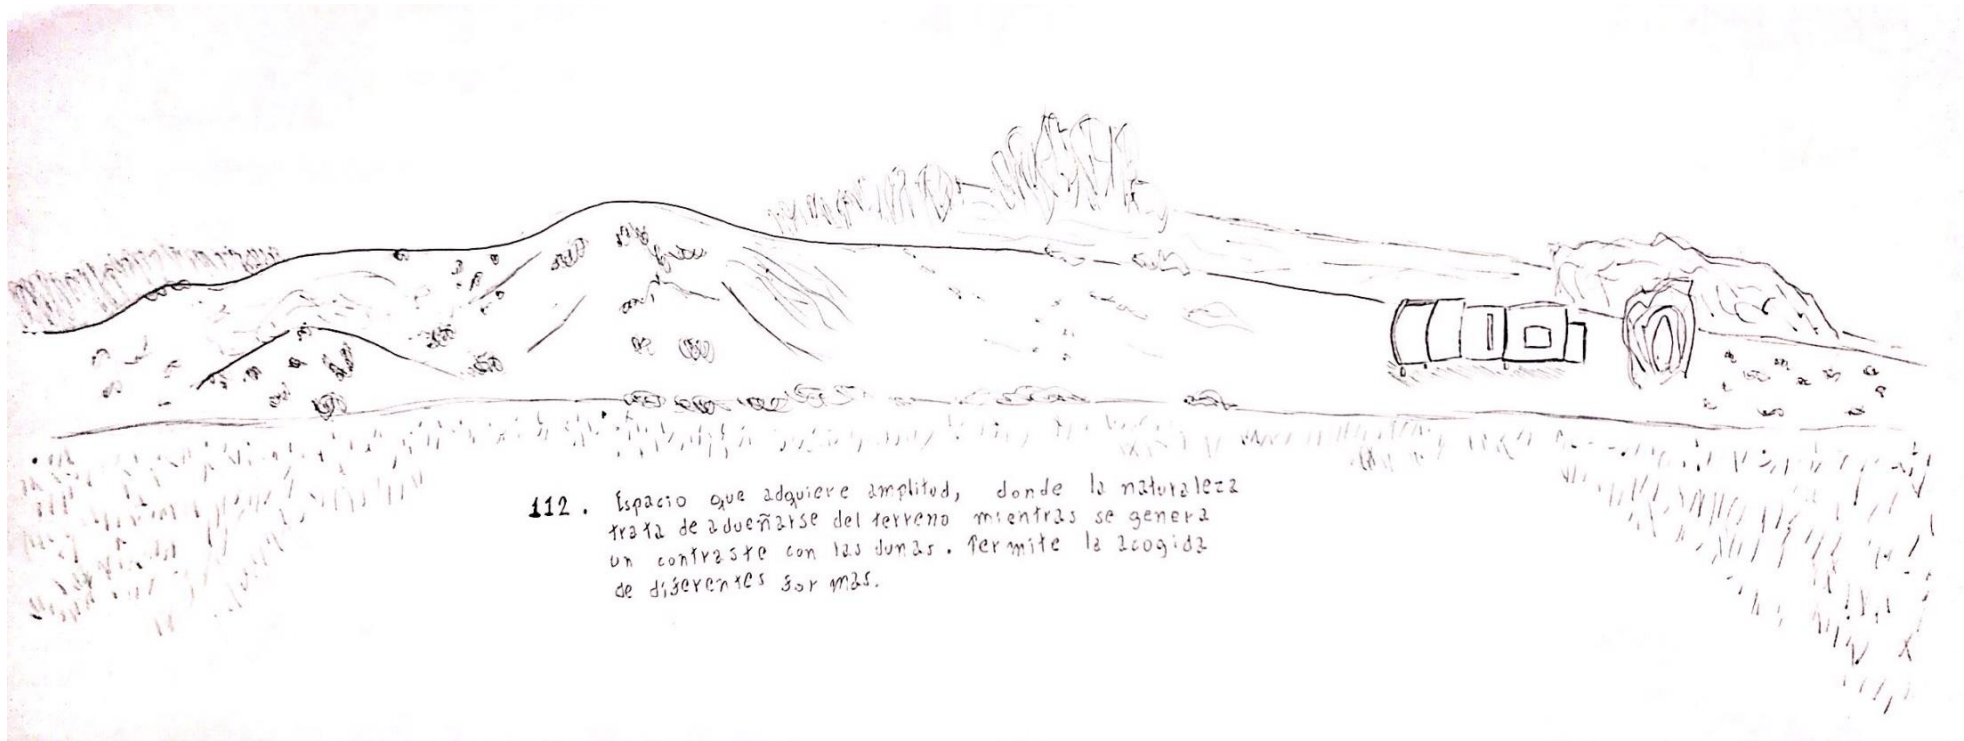 112. Espacio que adquiere amplitud, donde la naturaleza
trata de adueñarse del terreno mientras se genera
un contraste con las dunas. Permite la acogida
de diferentes formas.